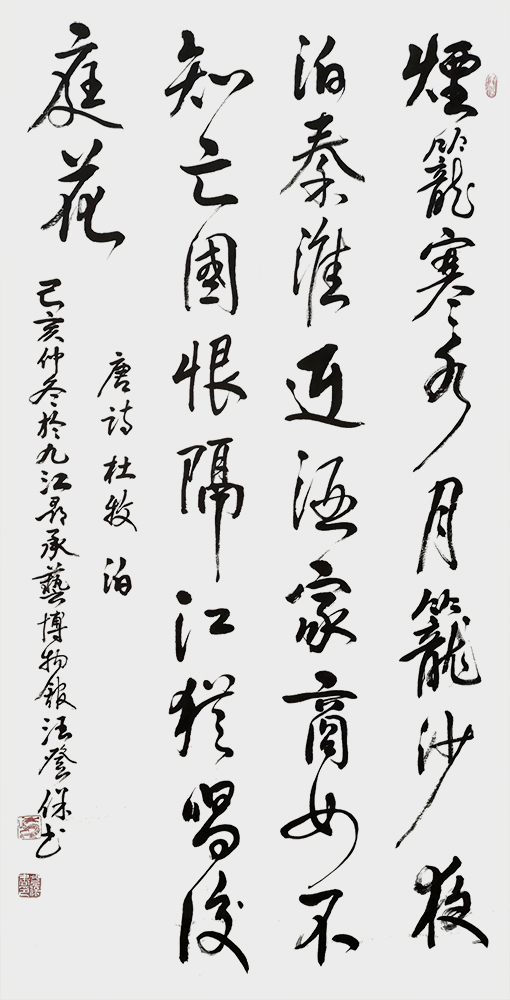 煙籠寒水月籠沙夜
泊秦淮近酒家商女不
知亡國恨隔江猶唱後
庭花
唐詩杜牧泊
己亥仲冬於九江承藝博物館汪登保书